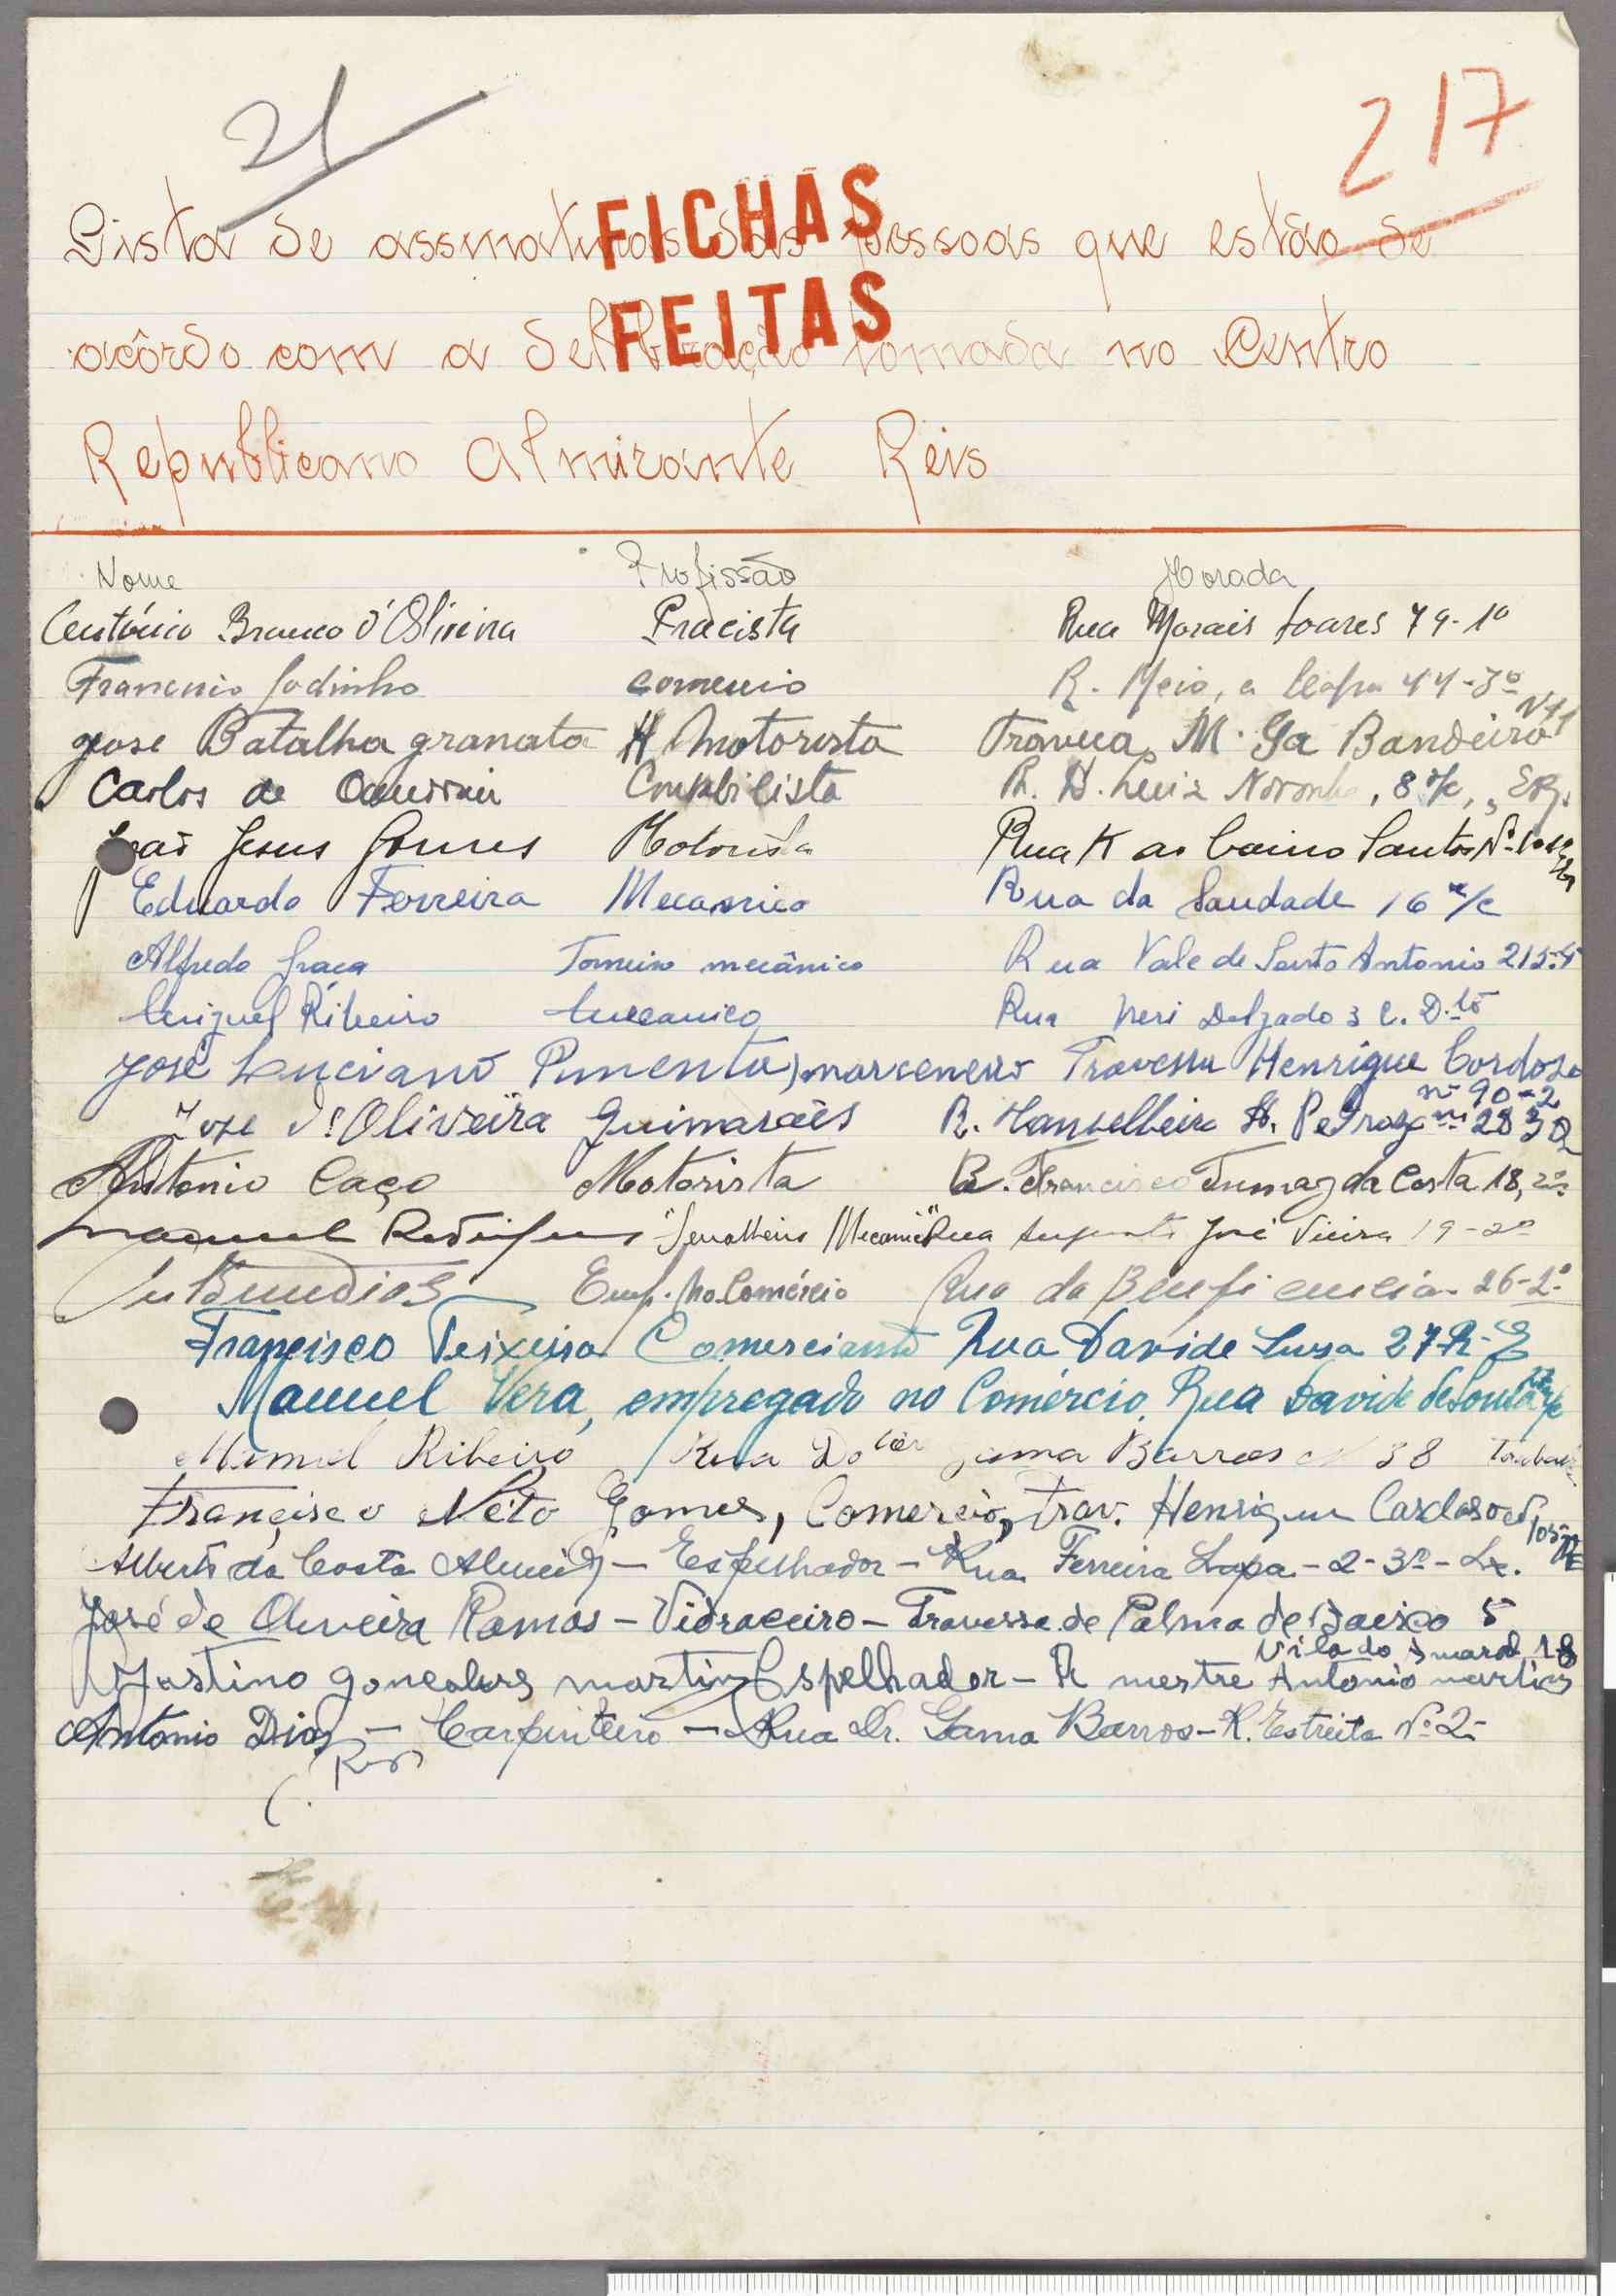 21
217
FICHAS
FEITAS
Lista de assinaturas das pessoas que estão de
acôrdo com a deliberação tomada no Centro
Republicano Almirante Reis
Nome Profissão Morada
António Branco d'Oliveira Pracista Rua Morais Soares 79-1º
Godinho comercio R. Meio, a Lapa 44-3º
José Batalha granata Motorista M. Bandeira
Carlos de R. Luiz Noronha, 8 r/c,
João Jesus Gomes Motorista Rua K ao Santos
Eduardo Ferreira Mecanico Rua da Saudade 16 r/c
Alfredo Graça Torneiro mecânico Rua Vale de Santo Antonio
Miguel Ribeiro Mecanico Rua Neri Delgado 3 C. D.to
José Luciano Pimenta marceneiro Travessa Henrique Cardoso
nº 90-2
Jose d'Oliveira Guimarães R.
Antonio Caço Motorista R. Francisco Tumaz da Costa 18, 2º
Manuel Rodrigues Serralheiro Mecanico Rua Augusto José Vieira 19-2º
Emp. no Comércio Rua da Beneficencia 26-2º
Francisco Teixeira Comerciante Rua Davide Susa 27 R-E
Manuel Vera, empregado no Comércio. Rua Davide de Sousa
Manuel Ribeiro Rua Gama Barros 38
Francisco Néto Gomes, Comercio, Trav. Henrique Cardoso
Alberto da Costa Almeida - Espelhador - Rua Ferreira Lapa - 2-3º-
José de Oliveira Ramos - Vidraceiro - Travessa de Palma de Baixo 5
Vila do 18
Justino gonçalves martins Espelhador - R mestre Antonio martins
Antonio Dias - Carpinteiro - Rua Dr. Gama Barros - R. Estreita Nº 2-